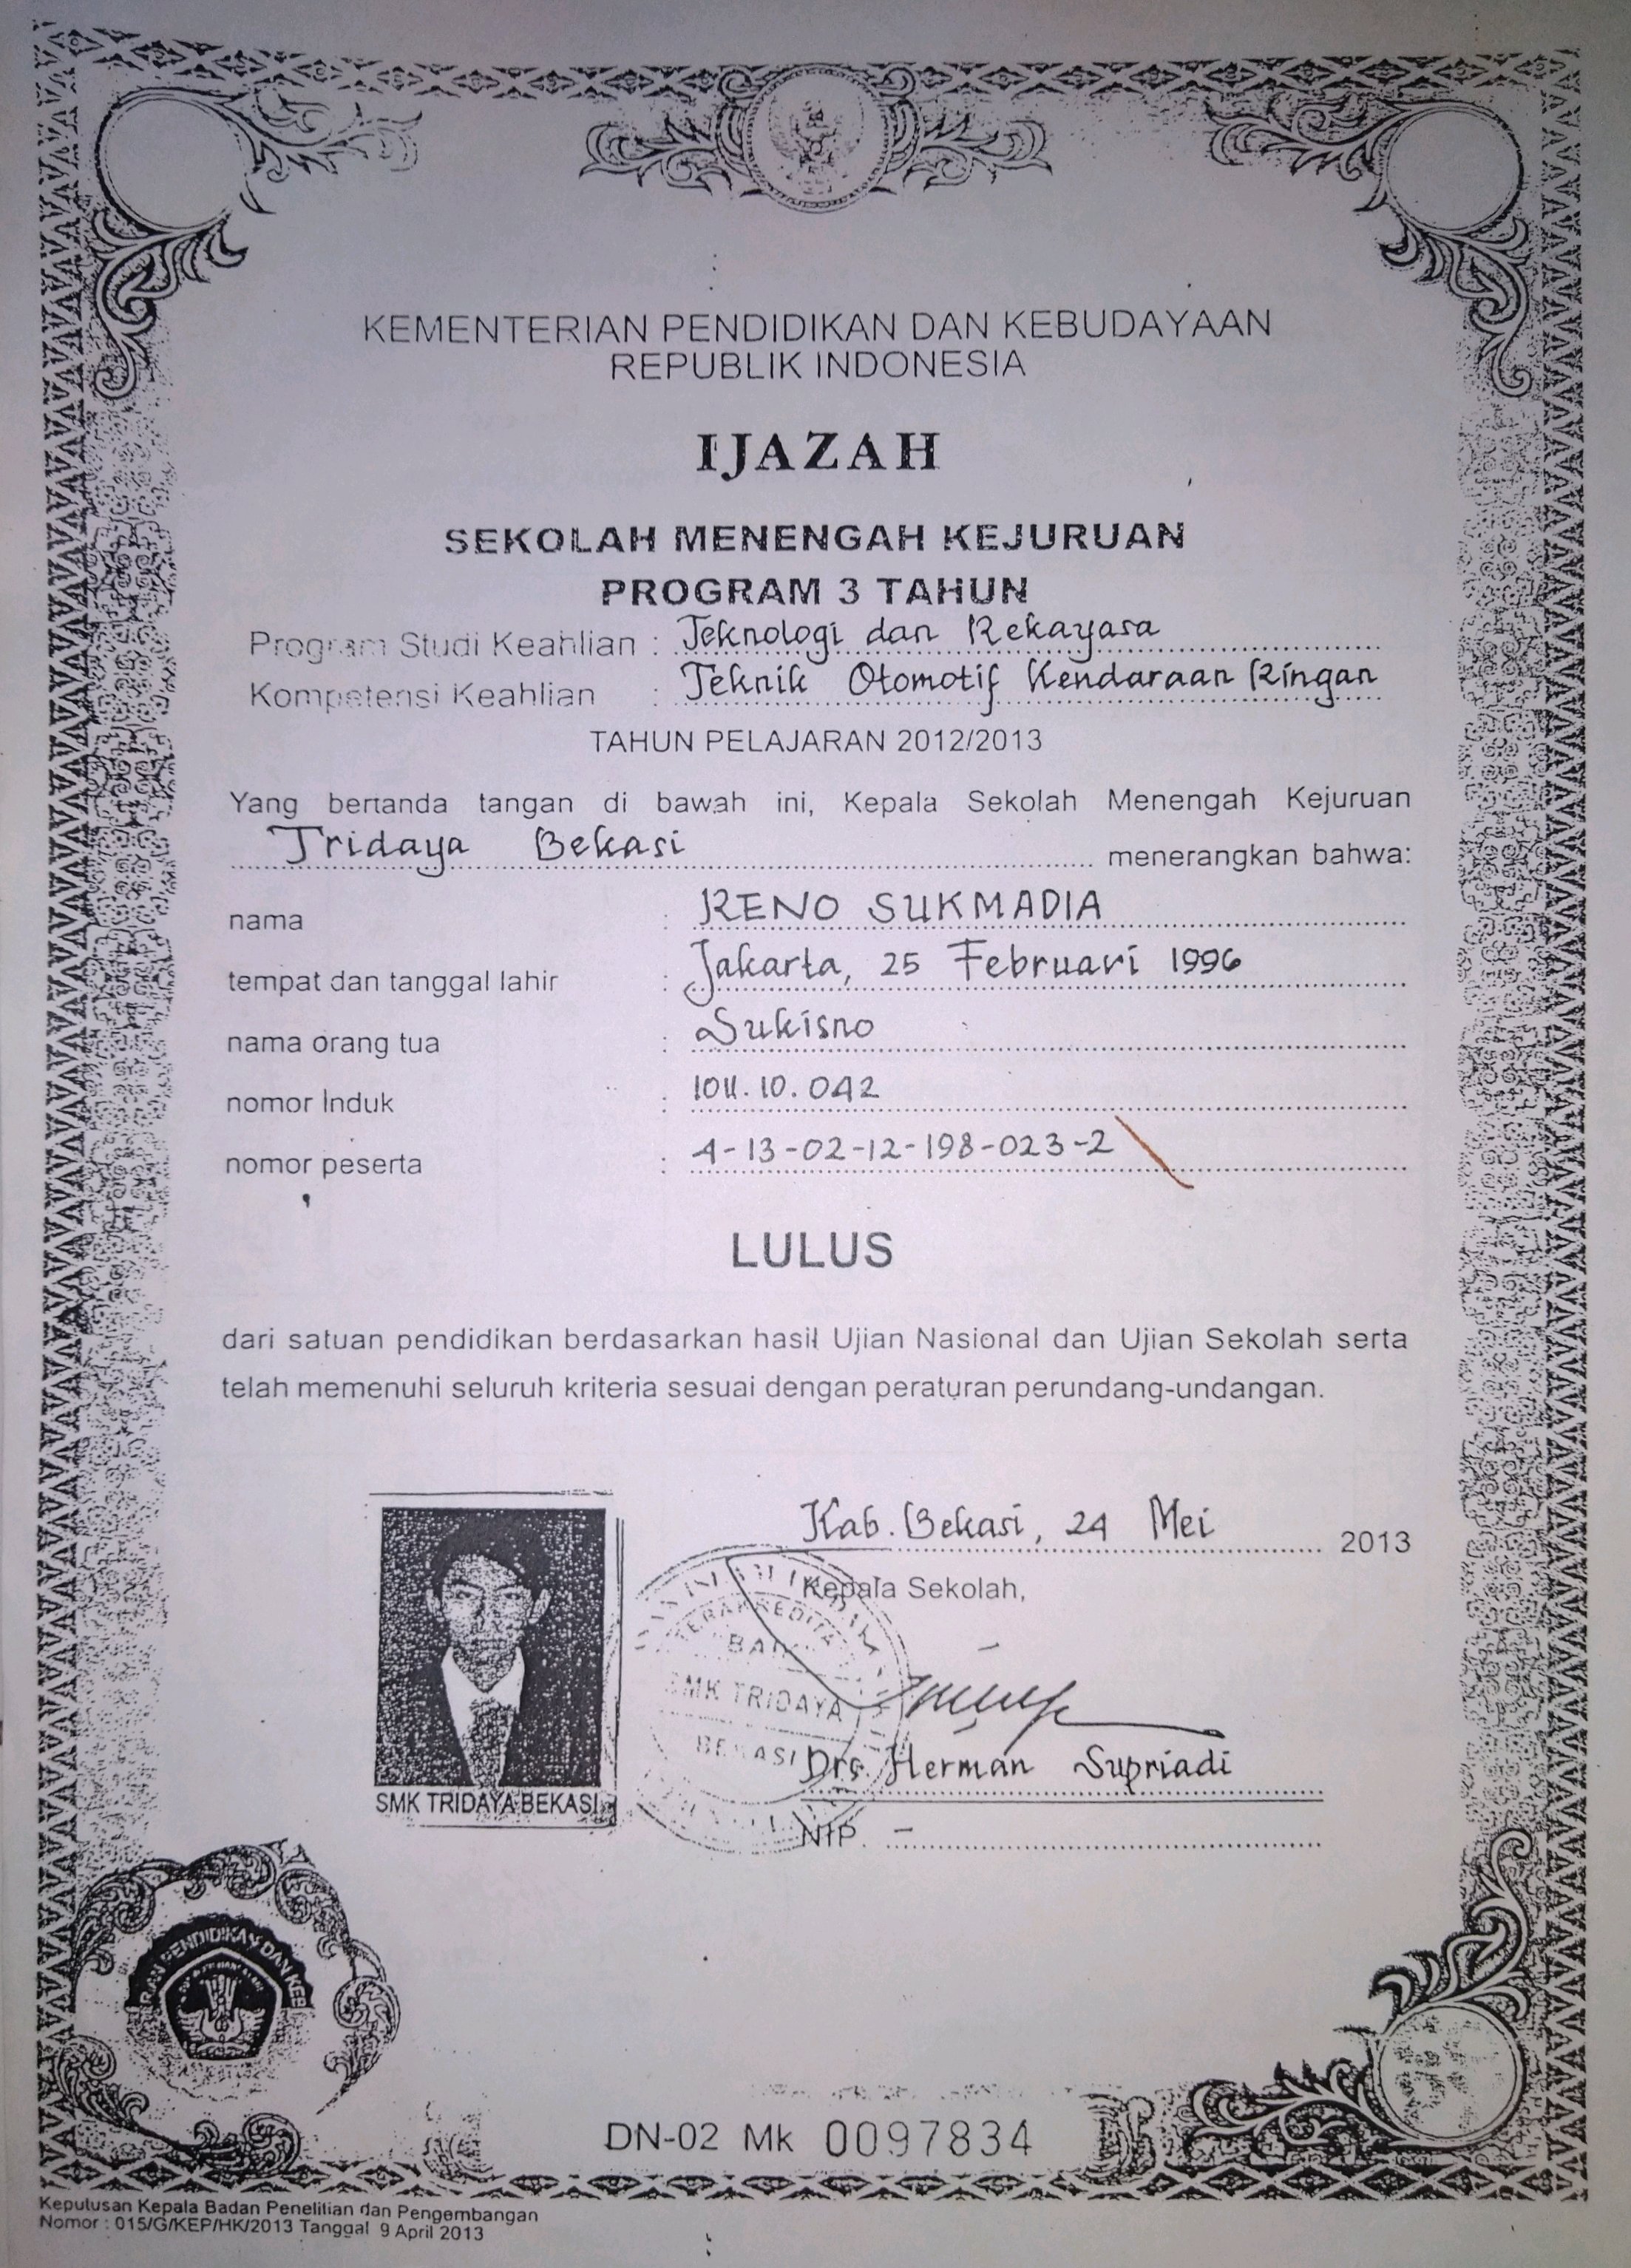 KEMENTERIAN PENDIDIKAN DAN KEBUDAYAAN
REPUBLIK INDONESIA
IJAZAH
SEKOLAH MENENGAH KEJURUAN
PROGRAM 3 TAHUN
Program Studi Keahlian : Teknologi dan Rekayasa
Kompetensi Keahlian : Teknik Otomotif Kendaraan Ringan
TAHUN PELAJARAN 2012/2013
Yang bertanda tangan di bawah ini, Kepala Sekolah Menengah Kejuruan
Tridaya Bekasi menerangkan bahwa:
nama : RENO SUKMADIA
tempat dan tanggal lahir : Jakarta, 25 Februari 1996
nama orang tua : Sukisno
nomor Induk : 1011.10.042
nomor peserta : 4-13-02-12-198-023-2
LULUS
dari satuan pendidikan berdasarkan hasil Ujian Nasional dan Ujian Sekolah serta
telah memenuhi seluruh kriteria sesuai dengan peraturan perundang-undangan.
Kab. Bekasi, 24 Mei 2013
Kepala Sekolah,
SMK TRIDAYA
BEKASI
Drs. Herman Supriadi
NIP. -
SMK TRIDAYA BEKASI
PENDIDIKAN DAN KEB
DN-02 Mk 0097834
Keputusan Kepala Badan Penelitian dan Pengembangan
Nomor : 015/G/KEP/HK/2013 Tanggal 9 April 2013